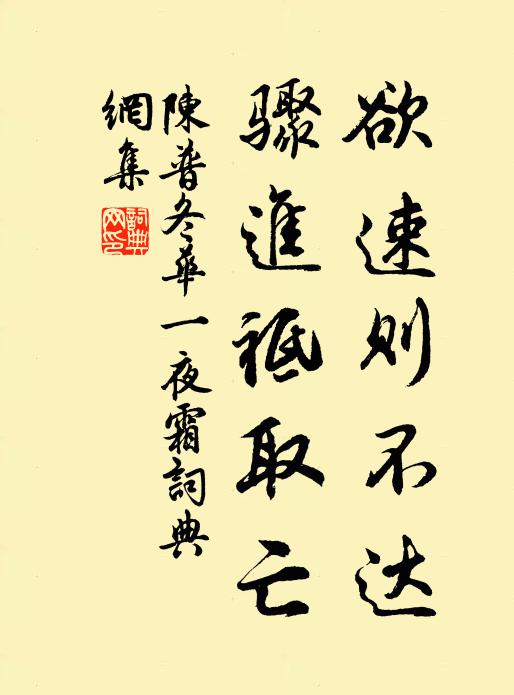 欲速则不达
骤進祗取亡
陳普冬華一夜霜詞典
網集
詞典网印